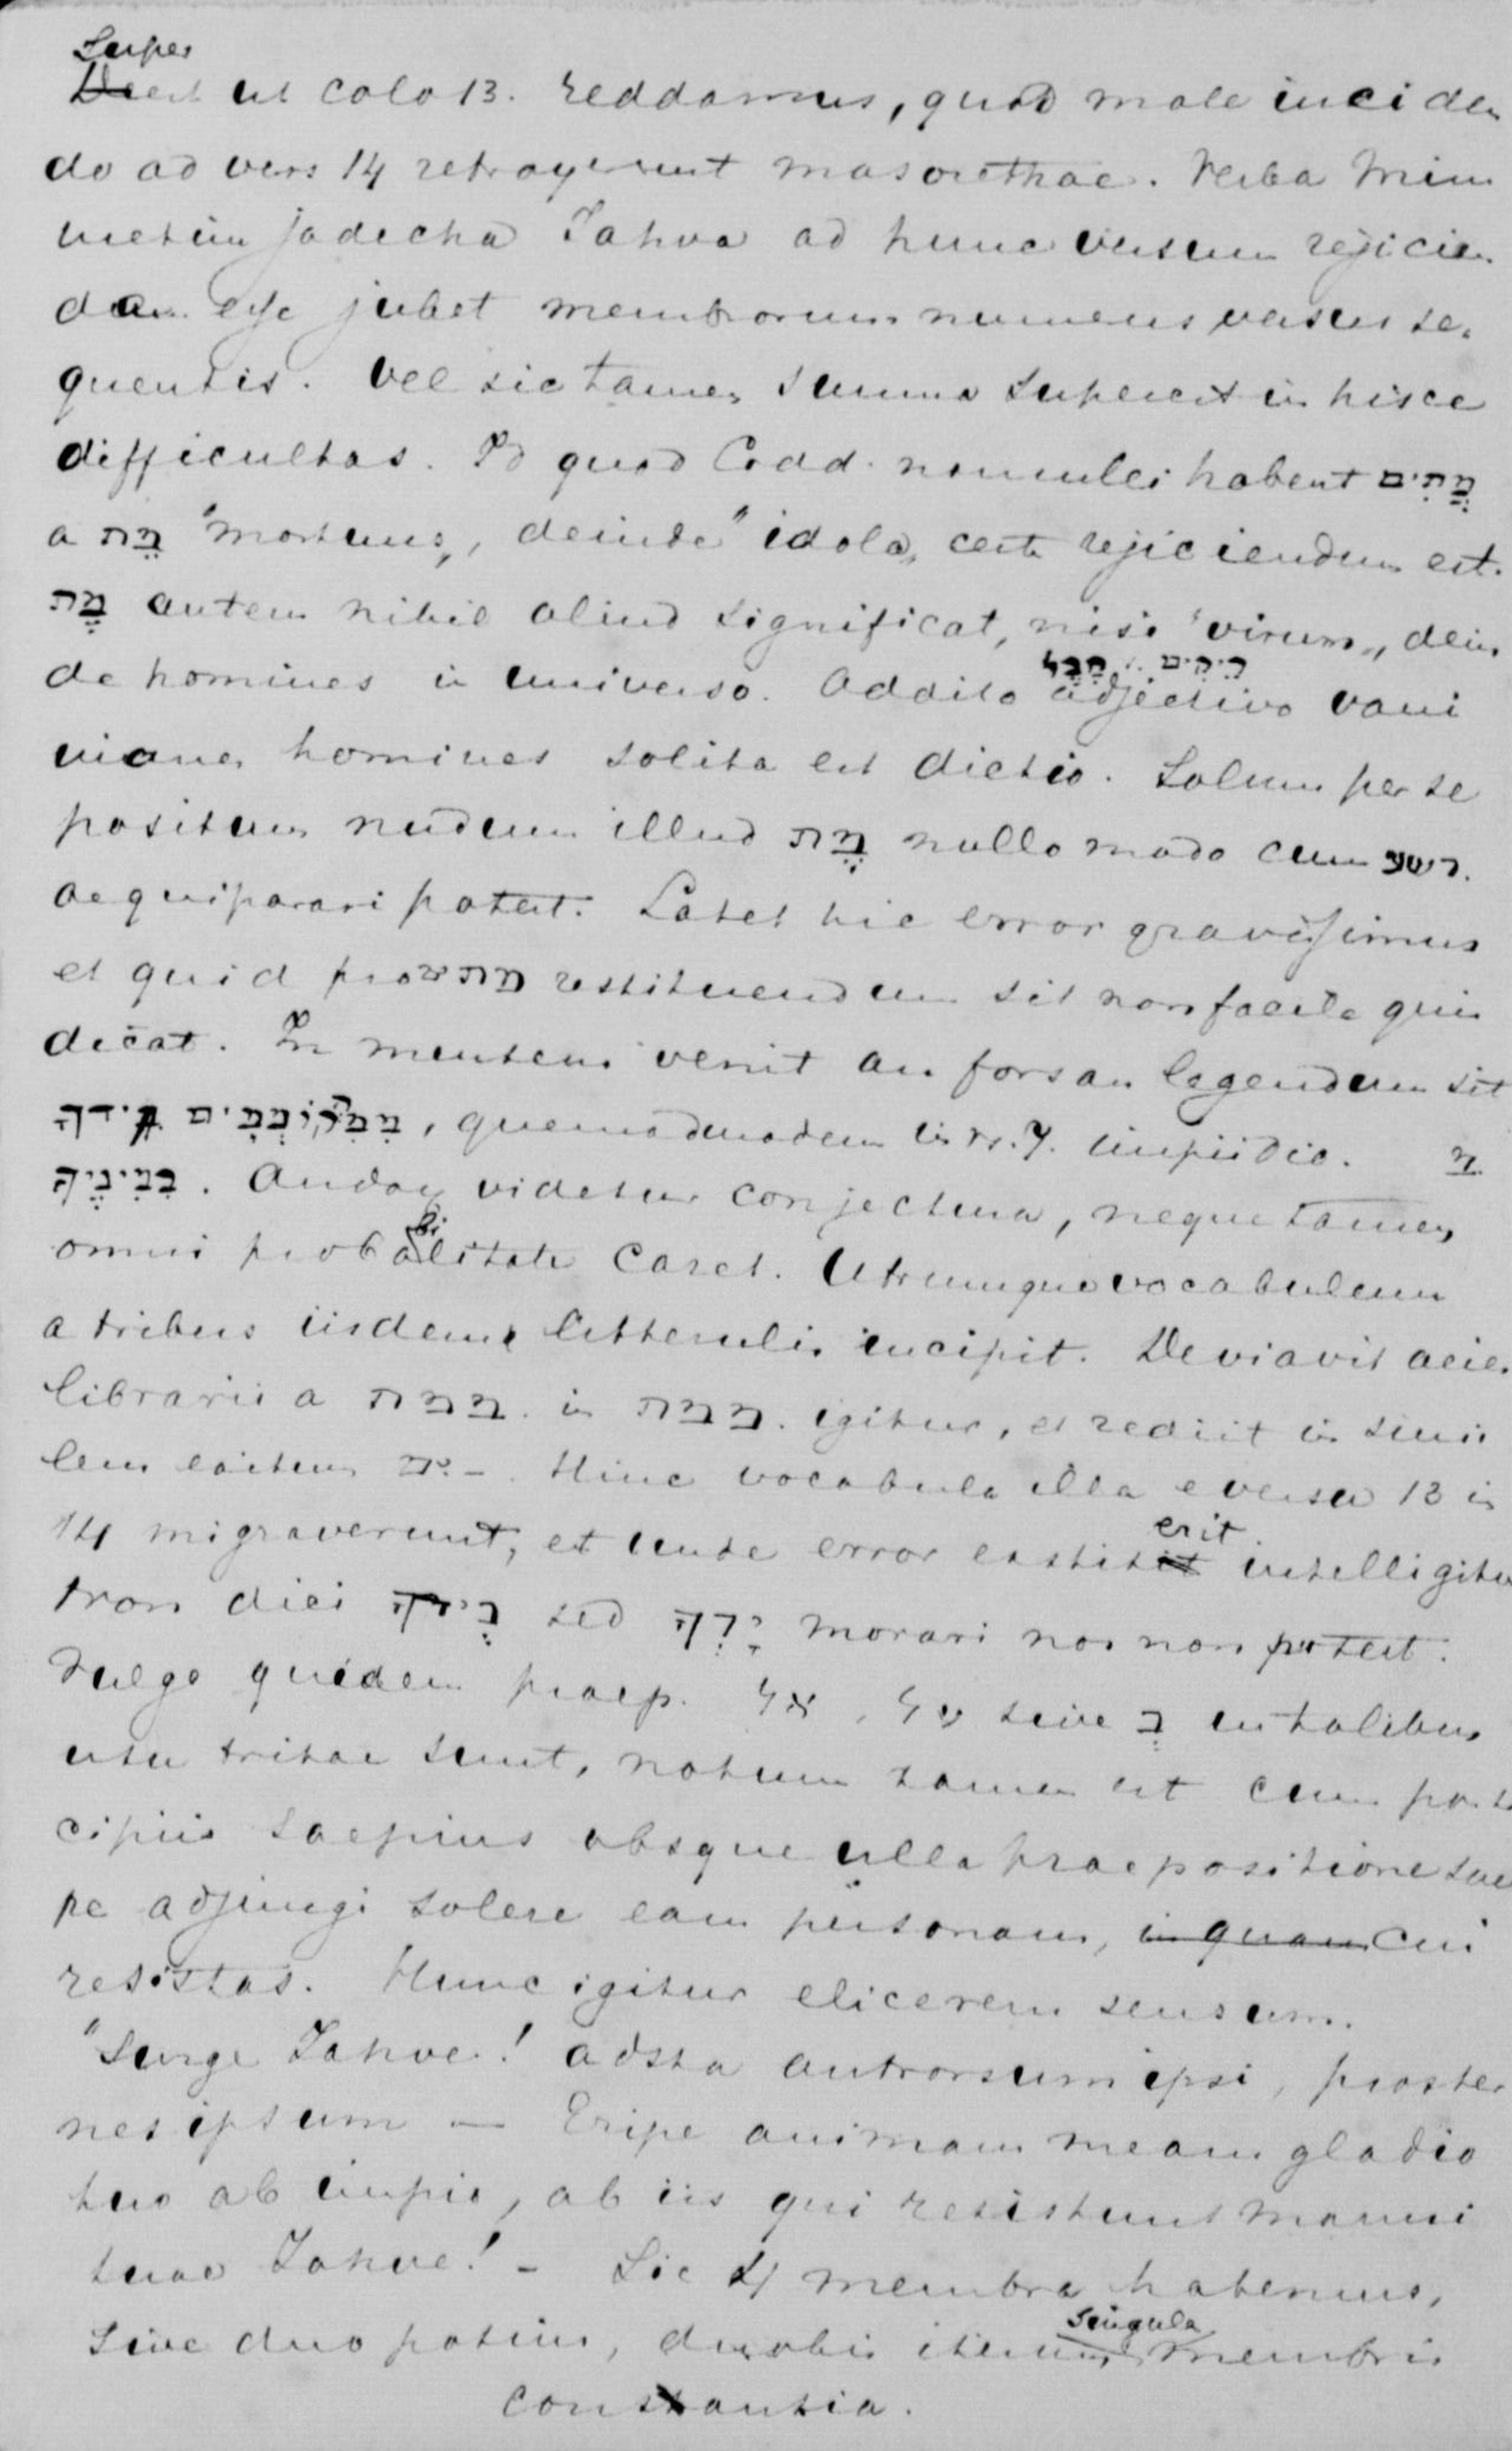 Super
Deest ut colo 13. reddamus, quod male inciden
do ad vers 14 retraxerunt masorethae. Verba Mim
metim jadecha Jahva ad hunc versum rejicien
dam esse jubet membrorum numerus versus se-
quentis. Vel sic tamen summa superest in hisce
difficultas. Id quod Codd. nonnulli habent מֵתִים
a מֵת "mortuus„, deinde "idola„ certe rejiciendum est.
מַת autem nihil aliud significat, nisi "virum„, dein
רֵיקִים הֶבֶל
de homines in universo. Addito adjectivo vani
viane homines solita est dictio. Solum per se
positum nudum illud מַת nullo modo cum רשע.
aequiparari potest. Latet hic error gravissimus
et quid pro מתים restituendum sit non facile quis
dicat. In mentem venit an forsan legendum sit
מִמִּתְקוֹמְמִים יָדְךָ, quemadmodum in vs. 7. impii dic. מ
בִּימִינֶךָ. Audax videtur conjectura, neque tamen
omni probabilitate caret. Utrumque vocabulum
a tribus iisdem litterulis incipit. Deviavit acies
librarii a ממת. in ממת. igitur, et rediit in simi
lem exitum ים –. Hinc vocabula illa e versu 13 in
14 migraverunt, et unde error exstiterit intelligitur
Non dici בְּיָדְךָ sed יָדְךָ morari nos non potest.
Vulgo quidem praep. אל, על sive בְּ in talibus
usu tritae sunt, notum tamen est cum parti
cipiis saepius absque ulla praepositione sae
pe adjungi solere eam personam, in quam cui
resistas. Hunc igitur elicerem sensum.
"Surge Jahve! adsta antrorsum ipsi, proster
nes ipsum — Eripe animam meam gladio
tuo ab impio, ab iis qui resistunt manui
tuae Jahve! – Sic 4 membra habemus,
singula
sive duo potius, duobis iterum membris
constantia.